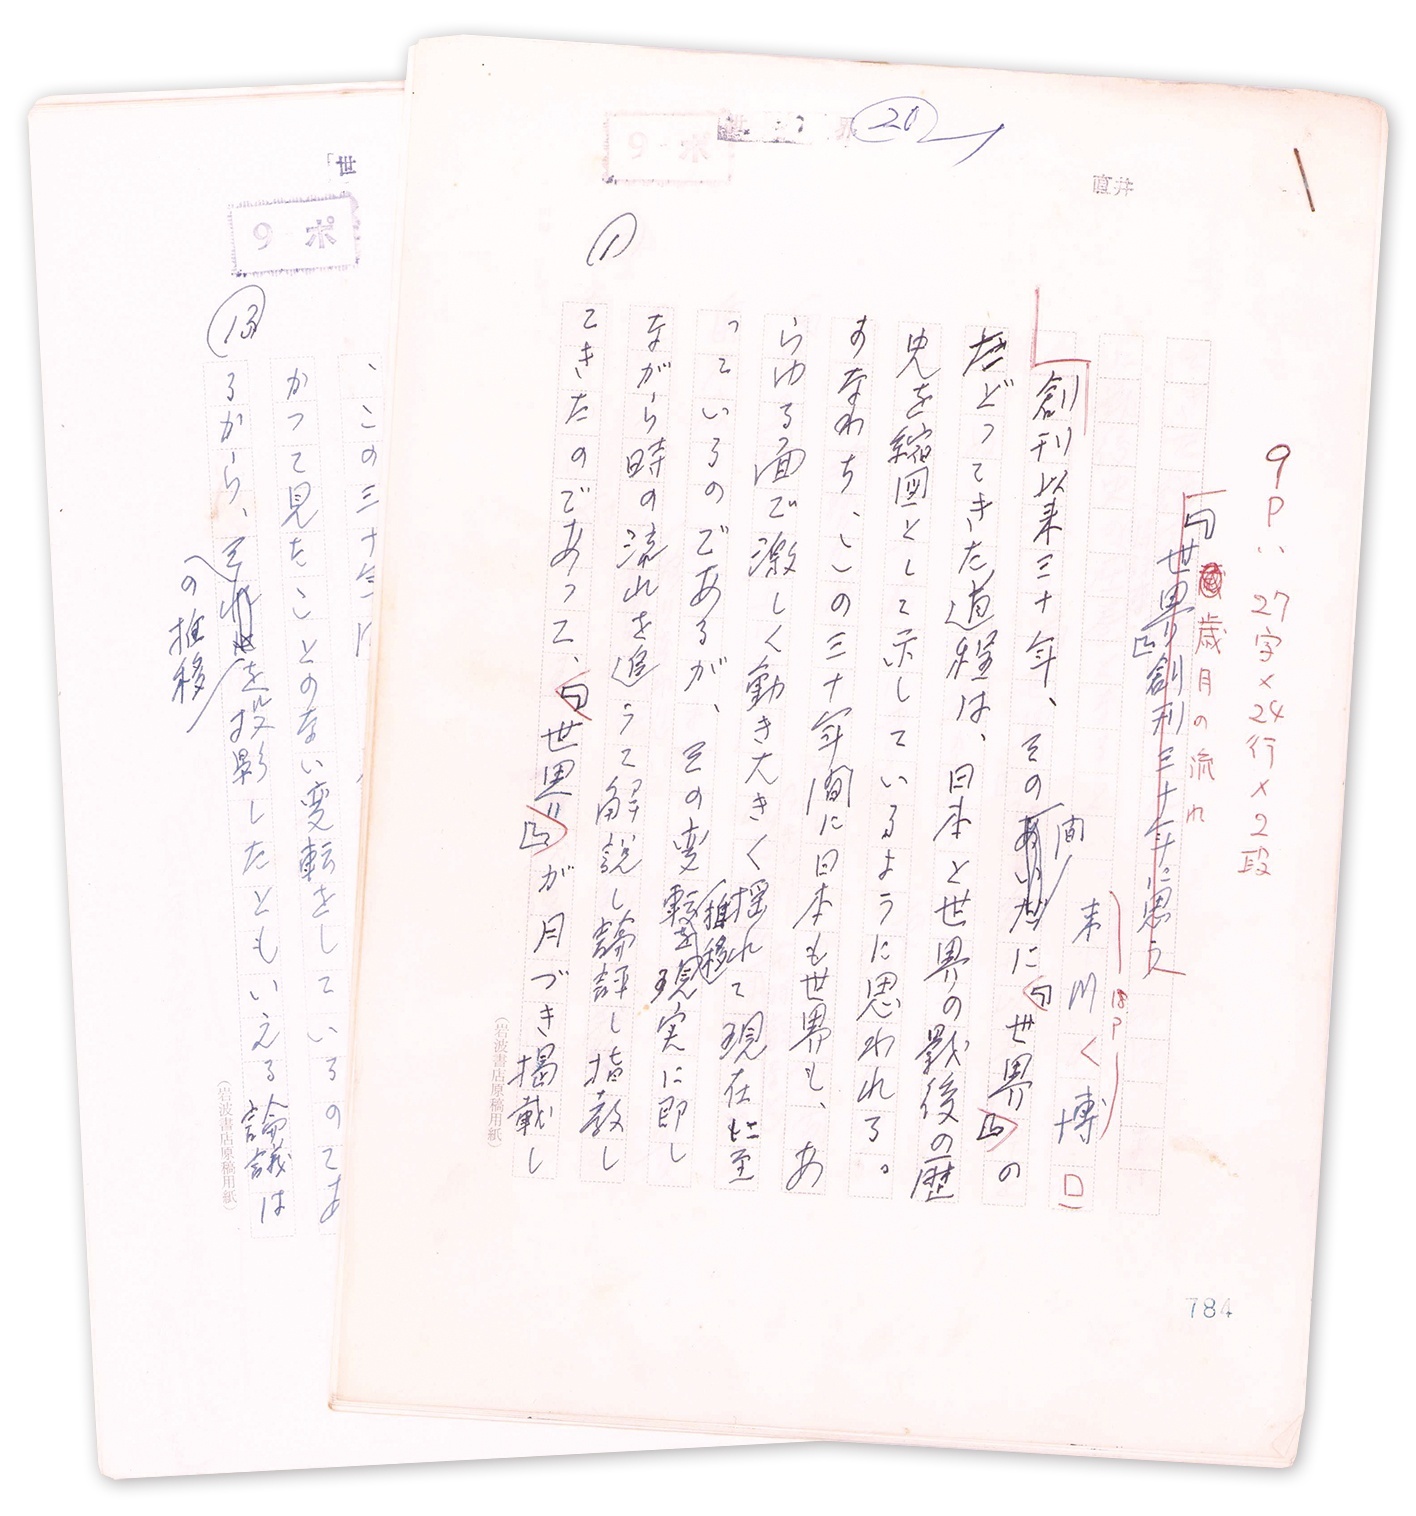 20
直井
9ポ
①
9P 27字×24行×2段
歳月の流れ
『世界』創刊三十年に思う
来川く博
18P
創刊以来三十年、その間に『世界』の
たどってきた道程は、日本と世界の戦後の歴
史を縮図として示しているように思われる。
すなわち、この三十年間に日本も世界も、あ
らゆる面で激しく動き大きく揺れて現在に至
っているのであるが、その変転推移を現実に即し
ながら時の流れを追うて解説し論評し指教し
てきたのであって、『世界』が月づき掲載し
(岩波書店原稿用紙)
784
「世
9ポ
⑬
、この三十年
かつて見たことのない変転をしているのであ
るから、それの推移を投影したともいえる論議は
(岩波書店原稿用紙)